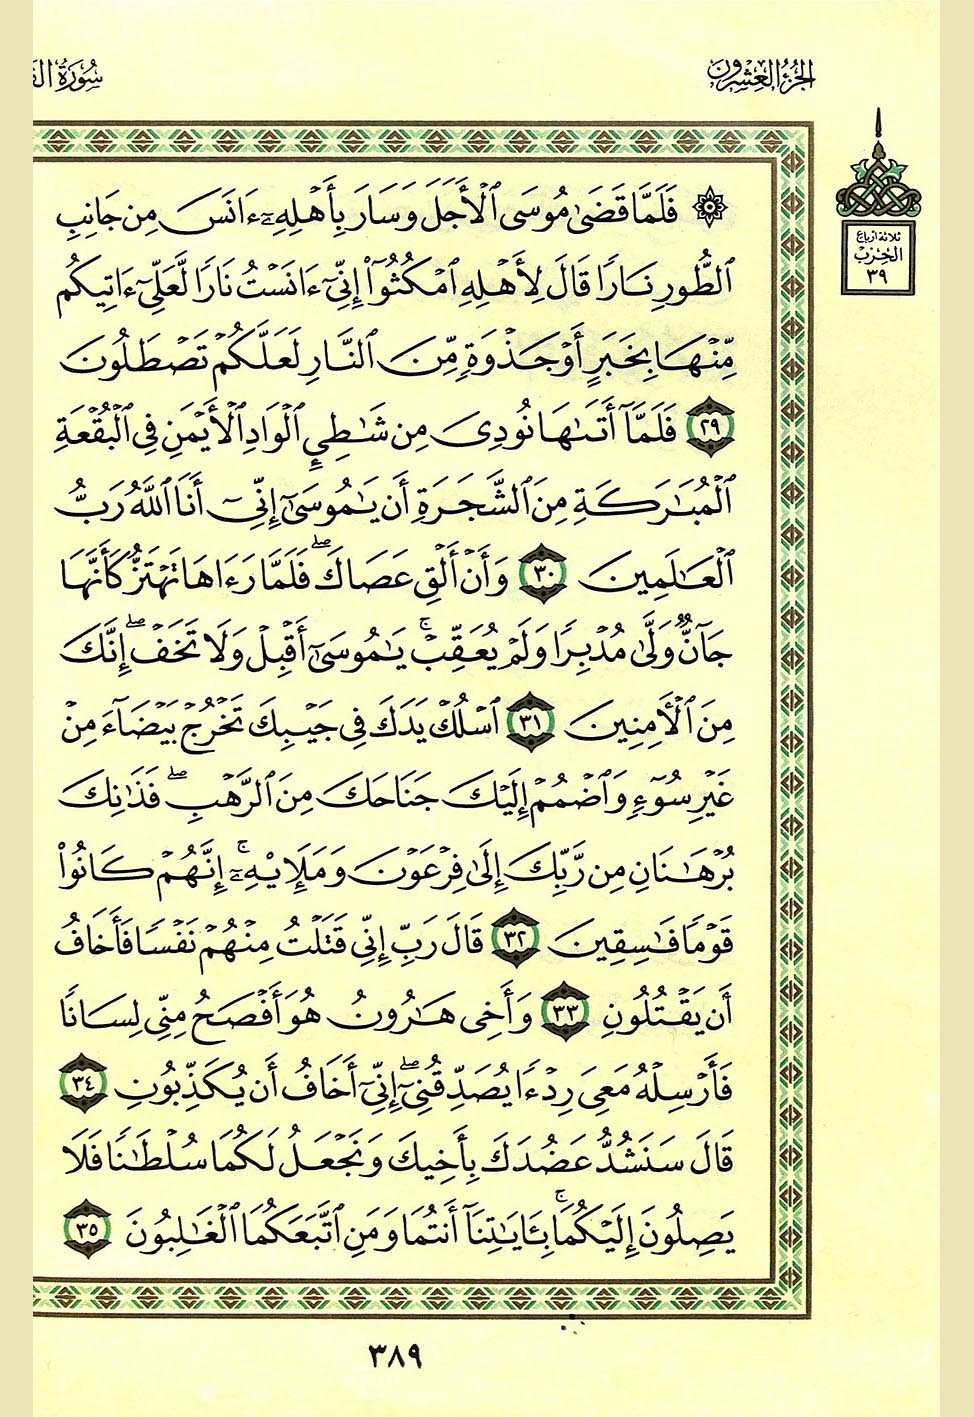 الجزء العشرون
سورة
ثلاثة أرباع
الحزب
٣٩
۞ فَلَمَّا قَضَىٰ مُوسَى ٱلْأَجَلَ وَسَارَ بِأَهْلِهِۦٓ ءَانَسَ مِن جَانِبِ
ٱلطُّورِ نَارًا قَالَ لِأَهْلِهِ ٱمْكُثُوٓا۟ إِنِّىٓ ءَانَسْتُ نَارًا لَّعَلِّىٓ ءَاتِيكُم
مِّنْهَا بِخَبَرٍ أَوْ جَذْوَةٍ مِّنَ ٱلنَّارِ لَعَلَّكُمْ تَصْطَلُونَ
٢٩ فَلَمَّآ أَتَىٰهَا نُودِىَ مِن شَٰطِئِ ٱلْوَادِ ٱلْأَيْمَنِ فِى ٱلْبُقْعَةِ
ٱلْمُبَٰرَكَةِ مِنَ ٱلشَّجَرَةِ أَن يَٰمُوسَىٰٓ إِنِّىٓ أَنَا ٱللَّهُ رَبُّ
ٱلْعَٰلَمِينَ ٣٠ وَأَنْ أَلْقِ عَصَاكَ ۖ فَلَمَّا رَءَاهَا تَهْتَزُّ كَأَنَّهَا
جَآنٌّ وَلَّىٰ مُدْبِرًا وَلَمْ يُعَقِّبْ ۚ يَٰمُوسَىٰٓ أَقْبِلْ وَلَا تَخَفْ ۖ إِنَّكَ
مِنَ ٱلْأَمِنِينَ ٣١ ٱسْلُكْ يَدَكَ فِى جَيْبِكَ تَخْرُجْ بَيْضَآءَ مِنْ
غَيْرِ سُوٓءٍ وَٱضْمُمْ إِلَيْكَ جَنَاحَكَ مِنَ ٱلرَّهْبِ ۖ فَذَٰنِكَ
بُرْهَٰنَانِ مِن رَّبِّكَ إِلَىٰ فِرْعَوْنَ وَمَلَإِيْهِۦٓ ۚ إِنَّهُمْ كَانُوا۟
قَوْمًا فَٰسِقِينَ ٣٢ قَالَ رَبِّ إِنِّى قَتَلْتُ مِنْهُمْ نَفْسًا فَأَخَافُ
أَن يَقْتُلُونِ ٣٣ وَأَخِى هَٰرُونُ هُوَ أَفْصَحُ مِنِّى لِسَانًا
فَأَرْسِلْهُ مَعِىَ رِدْءًا يُصَدِّقُنِىٓ ۖ إِنِّىٓ أَخَافُ أَن يُكَذِّبُونِ ٣٤
قَالَ سَنَشُدُّ عَضُدَكَ بِأَخِيكَ وَنَجْعَلُ لَكُمَا سُلْطَٰنًا فَلَا
يَصِلُونَ إِلَيْكُمَا ۚ بِـَٔايَٰتِنَآ أَنتُمَا وَمَنِ ٱتَّبَعَكُمَا ٱلْغَٰلِبُونَ ٣٥
٣٨٩